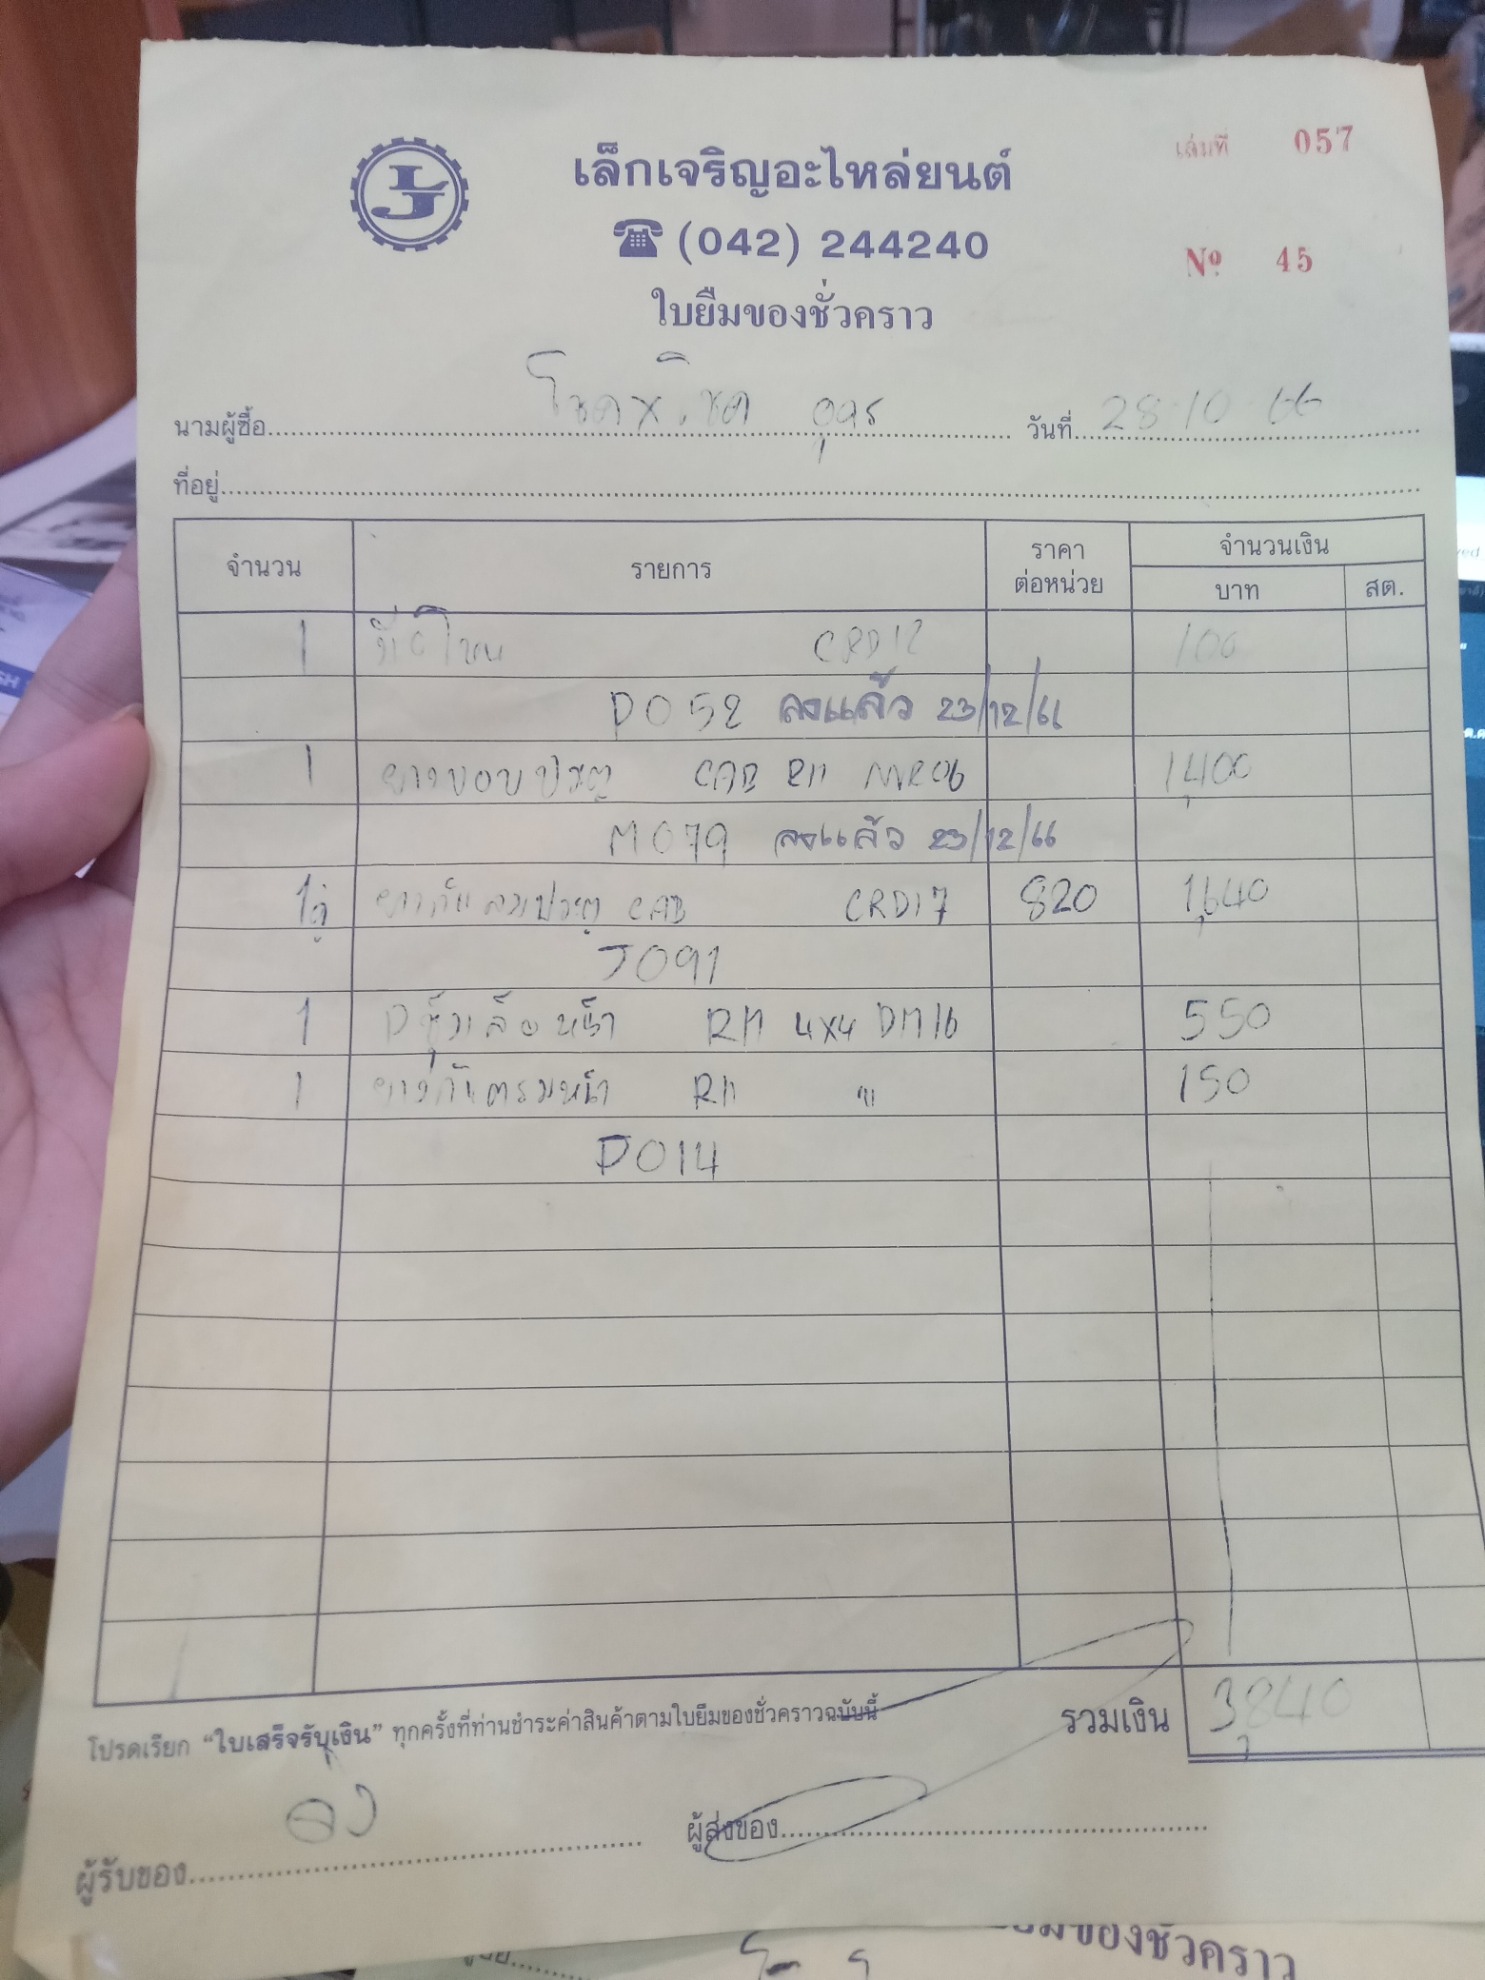 เล่มที่ 057
เล็กเจริญอะไหล่ยนต์
(042) 244240
Nº 45
ใบยืมของชั่วคราว
นามผู้ซื้อ โชคพิชิต อุดร วันที่ 28-10-66
ที่อยู่
จำนวน รายการ ราคาต่อหน่วย จำนวนเงิน
บาท สต.
1 CRD12 100
D052 ลงแล้ว 23/12/66
1 ยางขอบประตู CAB RH NVR06 1,400
M079 ลงแล้ว 23/12/66
1คู่ ยางกันลมประตู CAB CRD17 820 1,640
J091
1 ซุ้มล้อหน้า RH 4x4 DM16 550
1 RH " 150
D014
โปรดเรียก "ใบเสร็จรับเงิน" ทุกครั้งที่ท่านชำระค่าสินค้าตามใบยืมของชั่วคราวฉบับนี้ รวมเงิน 3,840
ผู้รับของ ผู้ส่งของ
ใบยืมของชั่วคราว